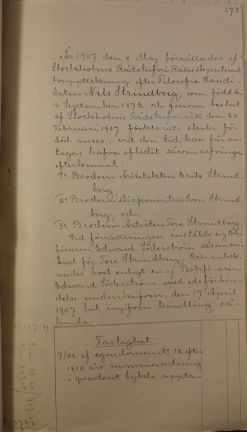 373
År 1907 den 8 Maj förrättades af
Stockholms Rådstufvu Rätts Deputerade
bouppteckning efter Filosofie Kandi-
daten Nils Strindberg, som, född den
4 September 1872 och genom beslut
af Stockholms Rådstufvurätt den 26
Februari 1907 förklarats skola för
död anses, vid den tid han får an-
tagas hafva aflidit såsom arfvingar
efterlemnat:
1:o Brodern Arkitekten Sven Strind-
berg,
2:o Brodern Disponenten Strind-
berg, och
3:o Brodern Artisten Tore Strindberg.
Vid förrättningen inställde sig
Edward Söderström såsom om-
bud för Tore Strindberg. Och anteck-
nades boet enligt en af
Edward Söderström med edsförbin-
delse underskrifven, den 17 April
1907 hit ingifven handling så-
lunda:
Fastighet
7/48 af egendomen N:o 12 efter
1810 års nummerordning
i quarteret